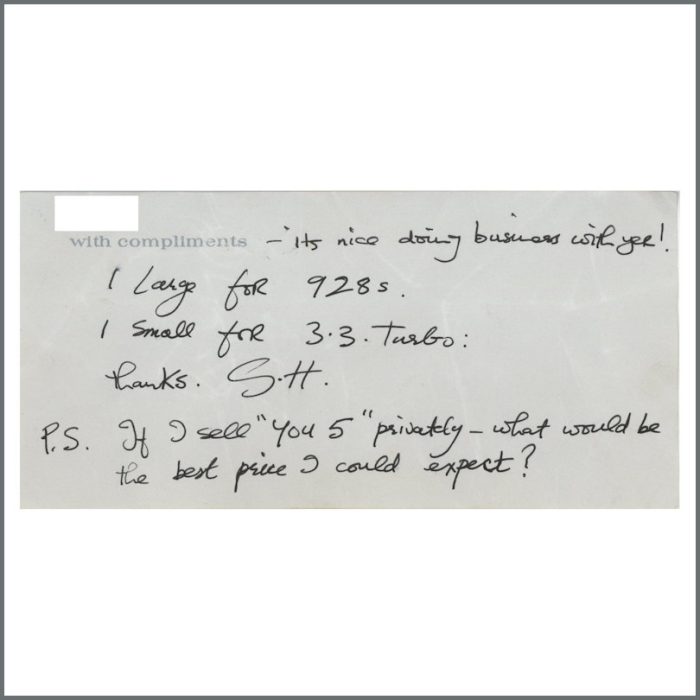 with compliments - its nice doing business with yer!
1 Large for 928s.
1 Small for 3.3. Turbo:
thanks. G.H.
P.S. If I sell "YOU 5" privately - what would be
the best price I could expect?